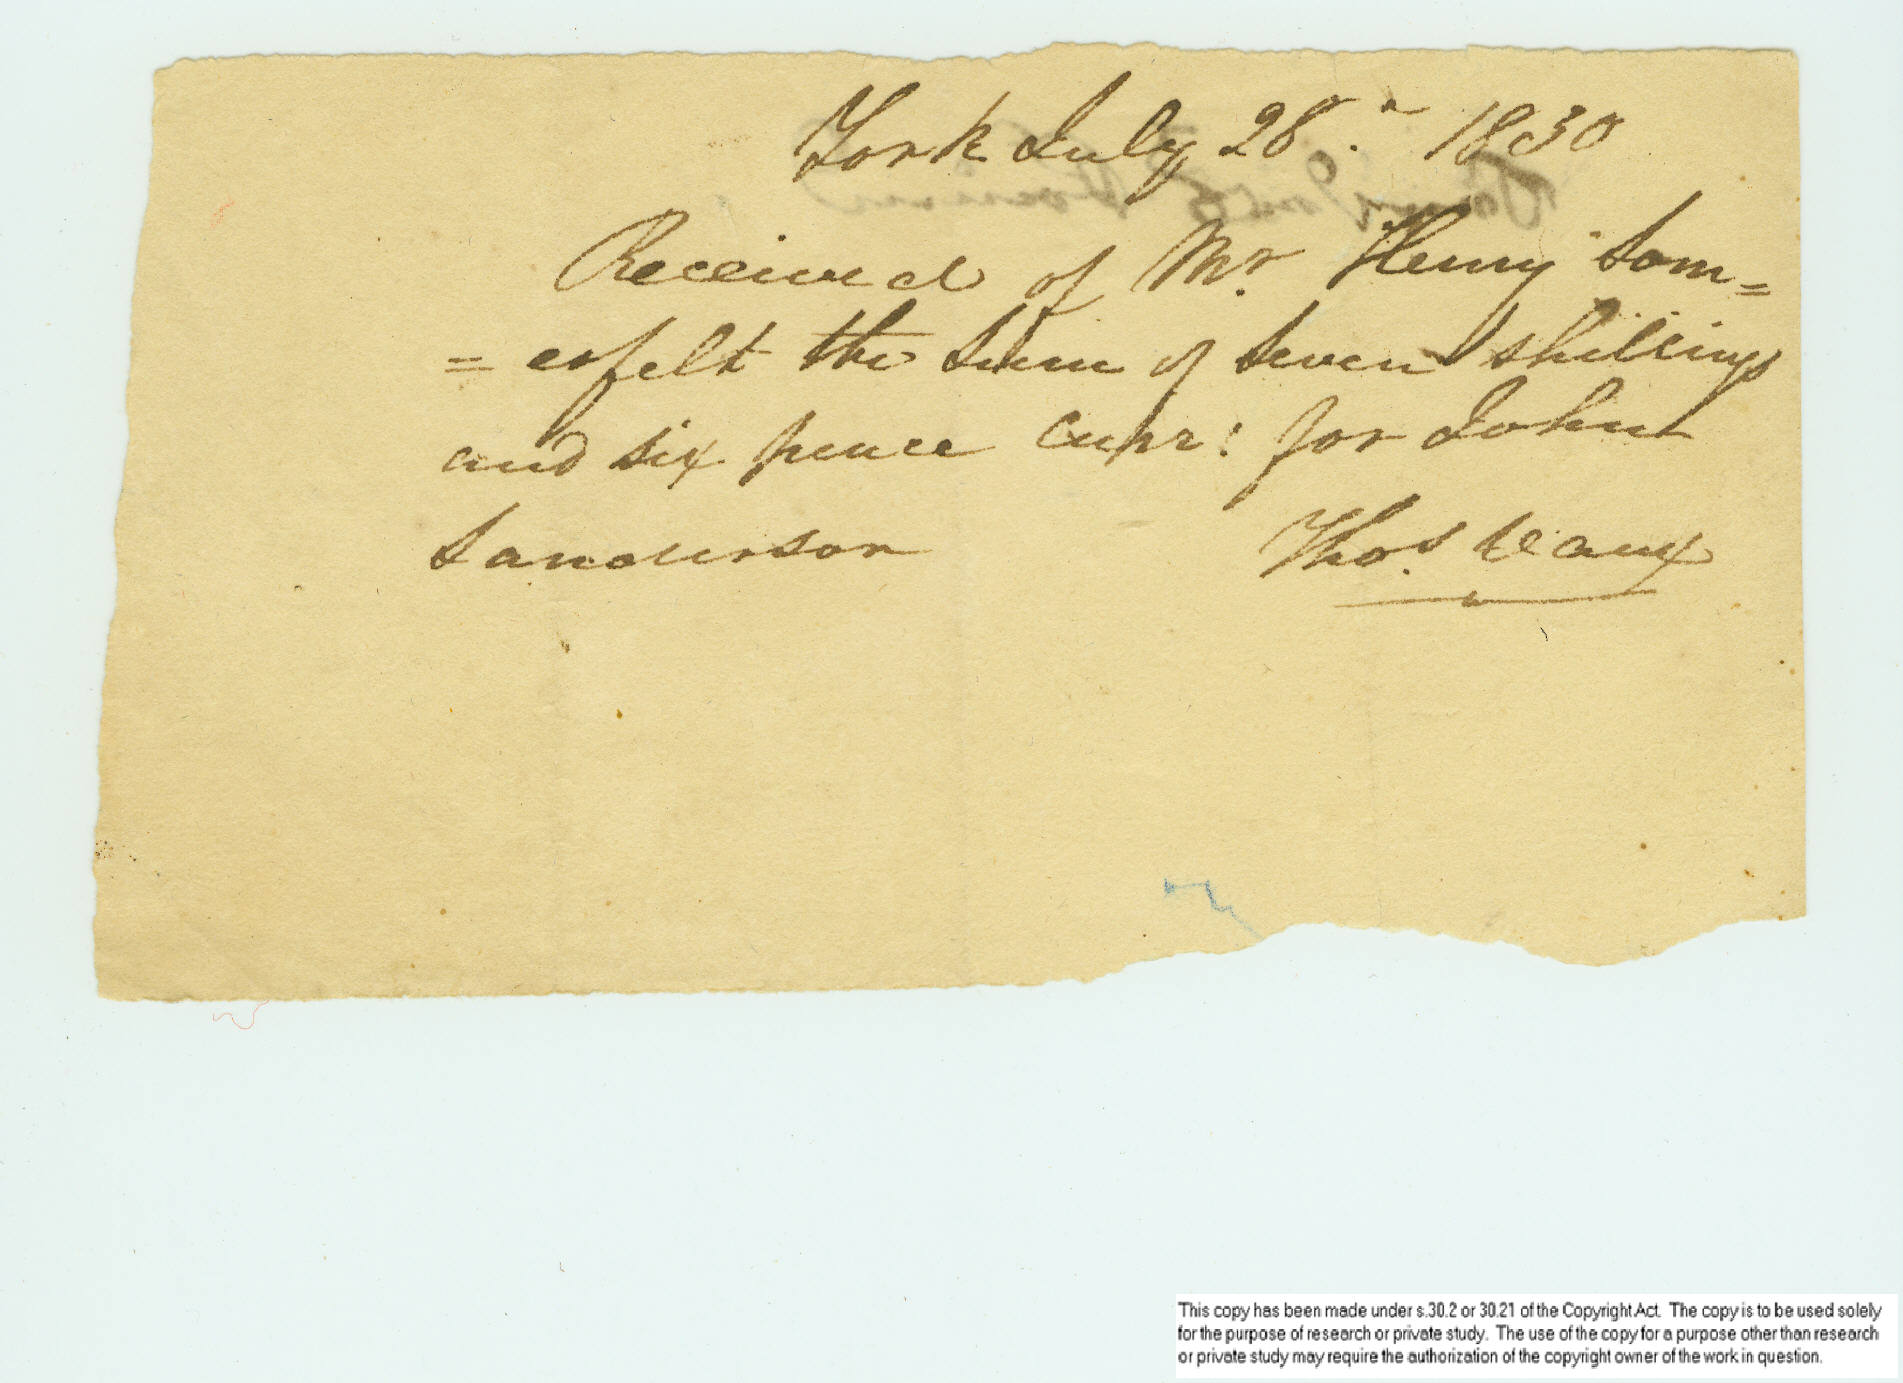 York July 28. 1830
Received of Mr. Henry Som=
=erfelt the Sum of Seven shillings
and six pence Curr: for John
Sanderson Thos. Vaux
This copy has been made under s.30.2 or 30.21 of the Copyright Act. The copy is to be used solely
for the purpose of research or private study. The use of the copy for a purpose other than research
or private study may require the authorization of the copyright owner of the work in question.